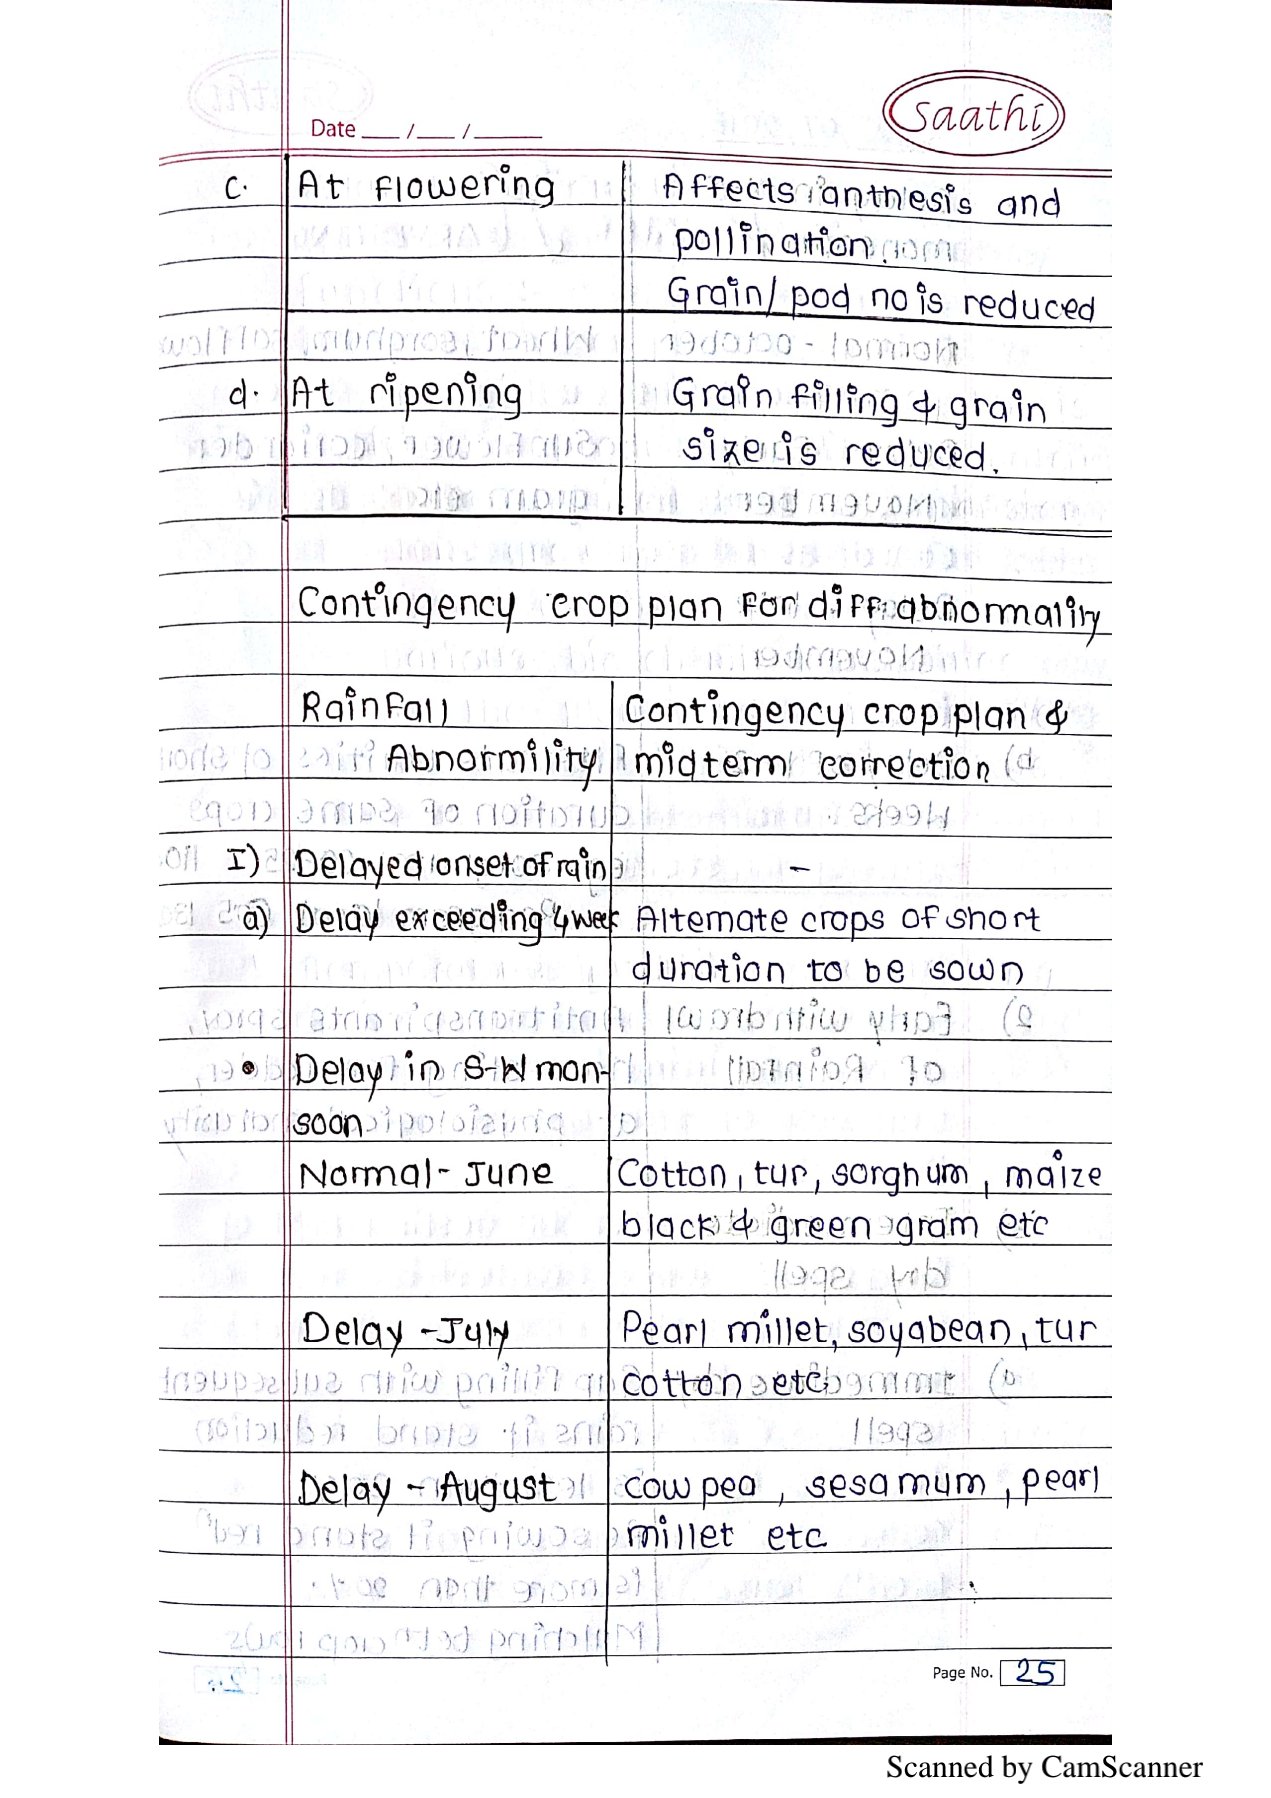 saathi
Date ___ /___ /______
c. At flowering Affects anthesis and
pollination.
Grain/pod no is reduced
d. At ripening Grain filling & grain
size is reduced.
Contingency crop plan for diff. abnormality
Rainfall Contingency crop plan &
Abnormility midterm correction
I) Delayed onset of rain –
a) Delay exceeding 4 week Alternate crops of short
duration to be sown
• Delay in S-W mon-
soon
Normal - June Cotton, tur, sorghum, maize
black & green gram etc
Delay - July Pearl millet, soyabean, tur
cotton etc.
Delay - August cow pea, sesamum, pearl
millet etc
Page No. 25
Scanned by CamScanner